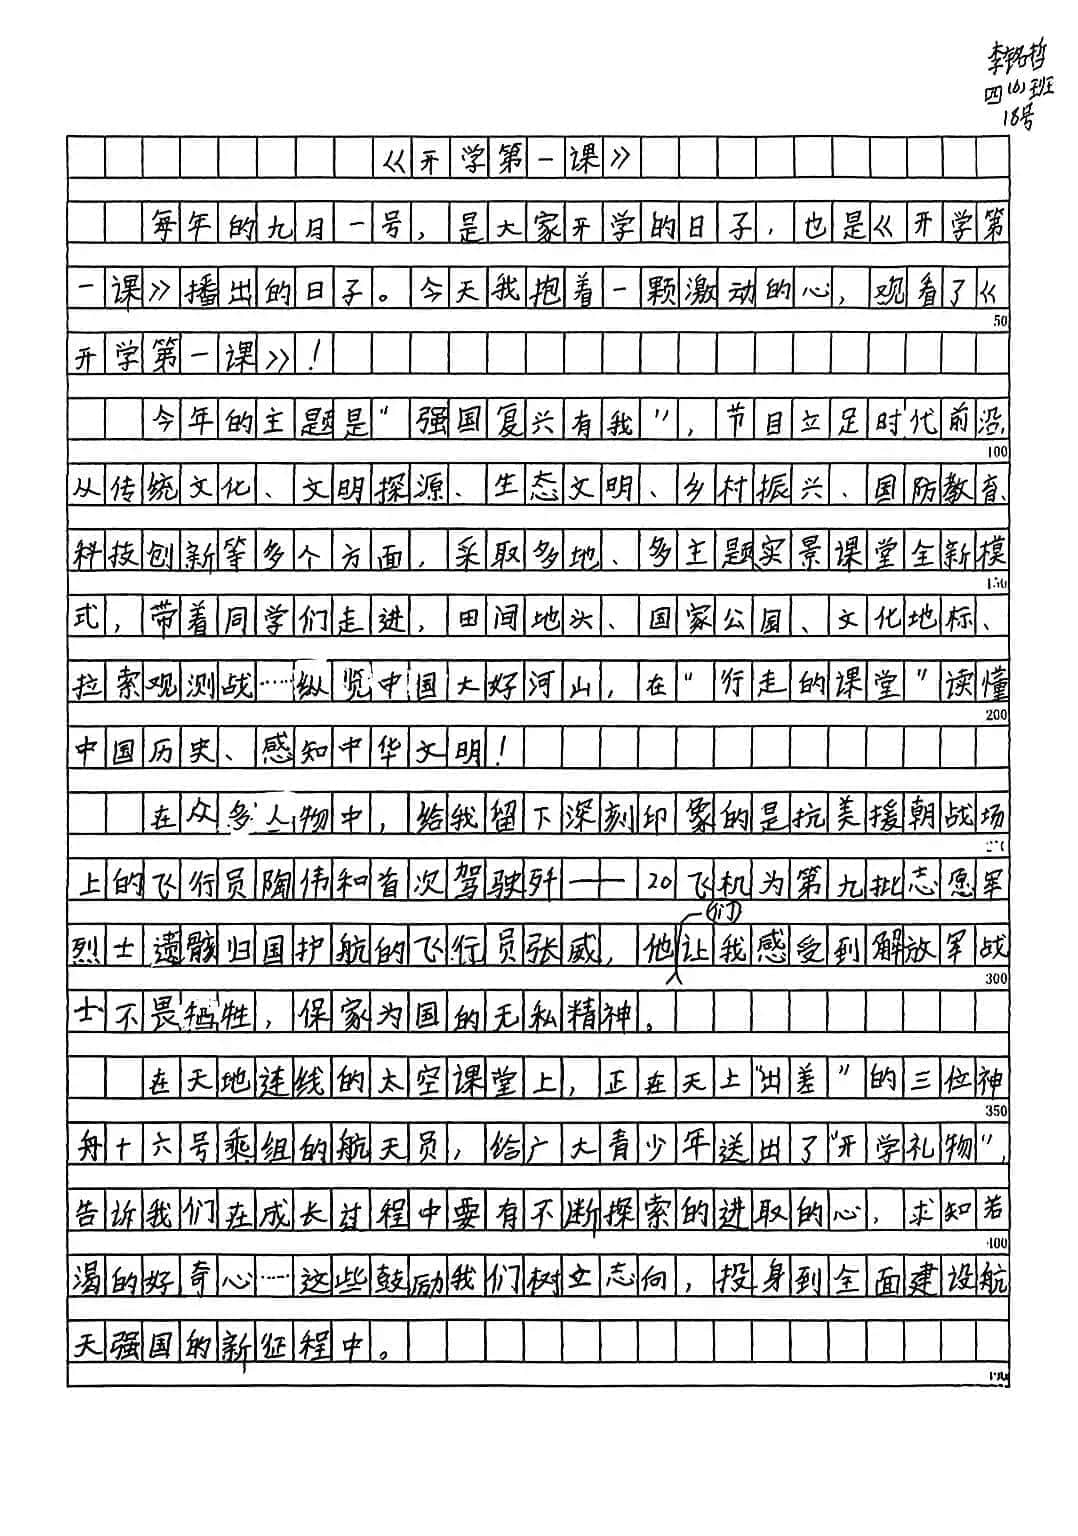 李铭哲
四(6)班
18号
《开学第一课》
每年的九日一号，是大家开学的日子，也是《开学第
一课》播出的日子。今天我抱着一颗激动的心，观看了《
50
开学第一课》！
今年的主题是“强国复兴有我”，节目立足时代前沿，
100
从传统文化、文明探源、生态文明、乡村振兴、国防教育、
科技创新等多个方面，采取多地、多主题实景课堂全新模
150
式，带着同学们走进，田间地头、国家公园、文化地标、
拉索观测战……纵览中国大好河山，在“行走的课堂”读懂
200
中国历史、感知中华文明！
在众多人物中，给我留下深刻印象的是抗美援朝战场
上的飞行员陶伟和首次驾驶歼——20飞机为第九批志愿军
烈士遗骸归国护航的飞行员张威，他们让我感受到解放军战
300
士不畏牺牲，保家为国的无私精神。
在天地连线的太空课堂上，正在天上“出差”的三位神
350
舟十六号乘组的航天员，给广大青少年送出了“开学礼物”，
告诉我们在成长过程中要有不断探索的进取的心，求知若
400
渴的好奇心……这些鼓励我们树立志向，投身到全面建设航
天强国的新征程中。